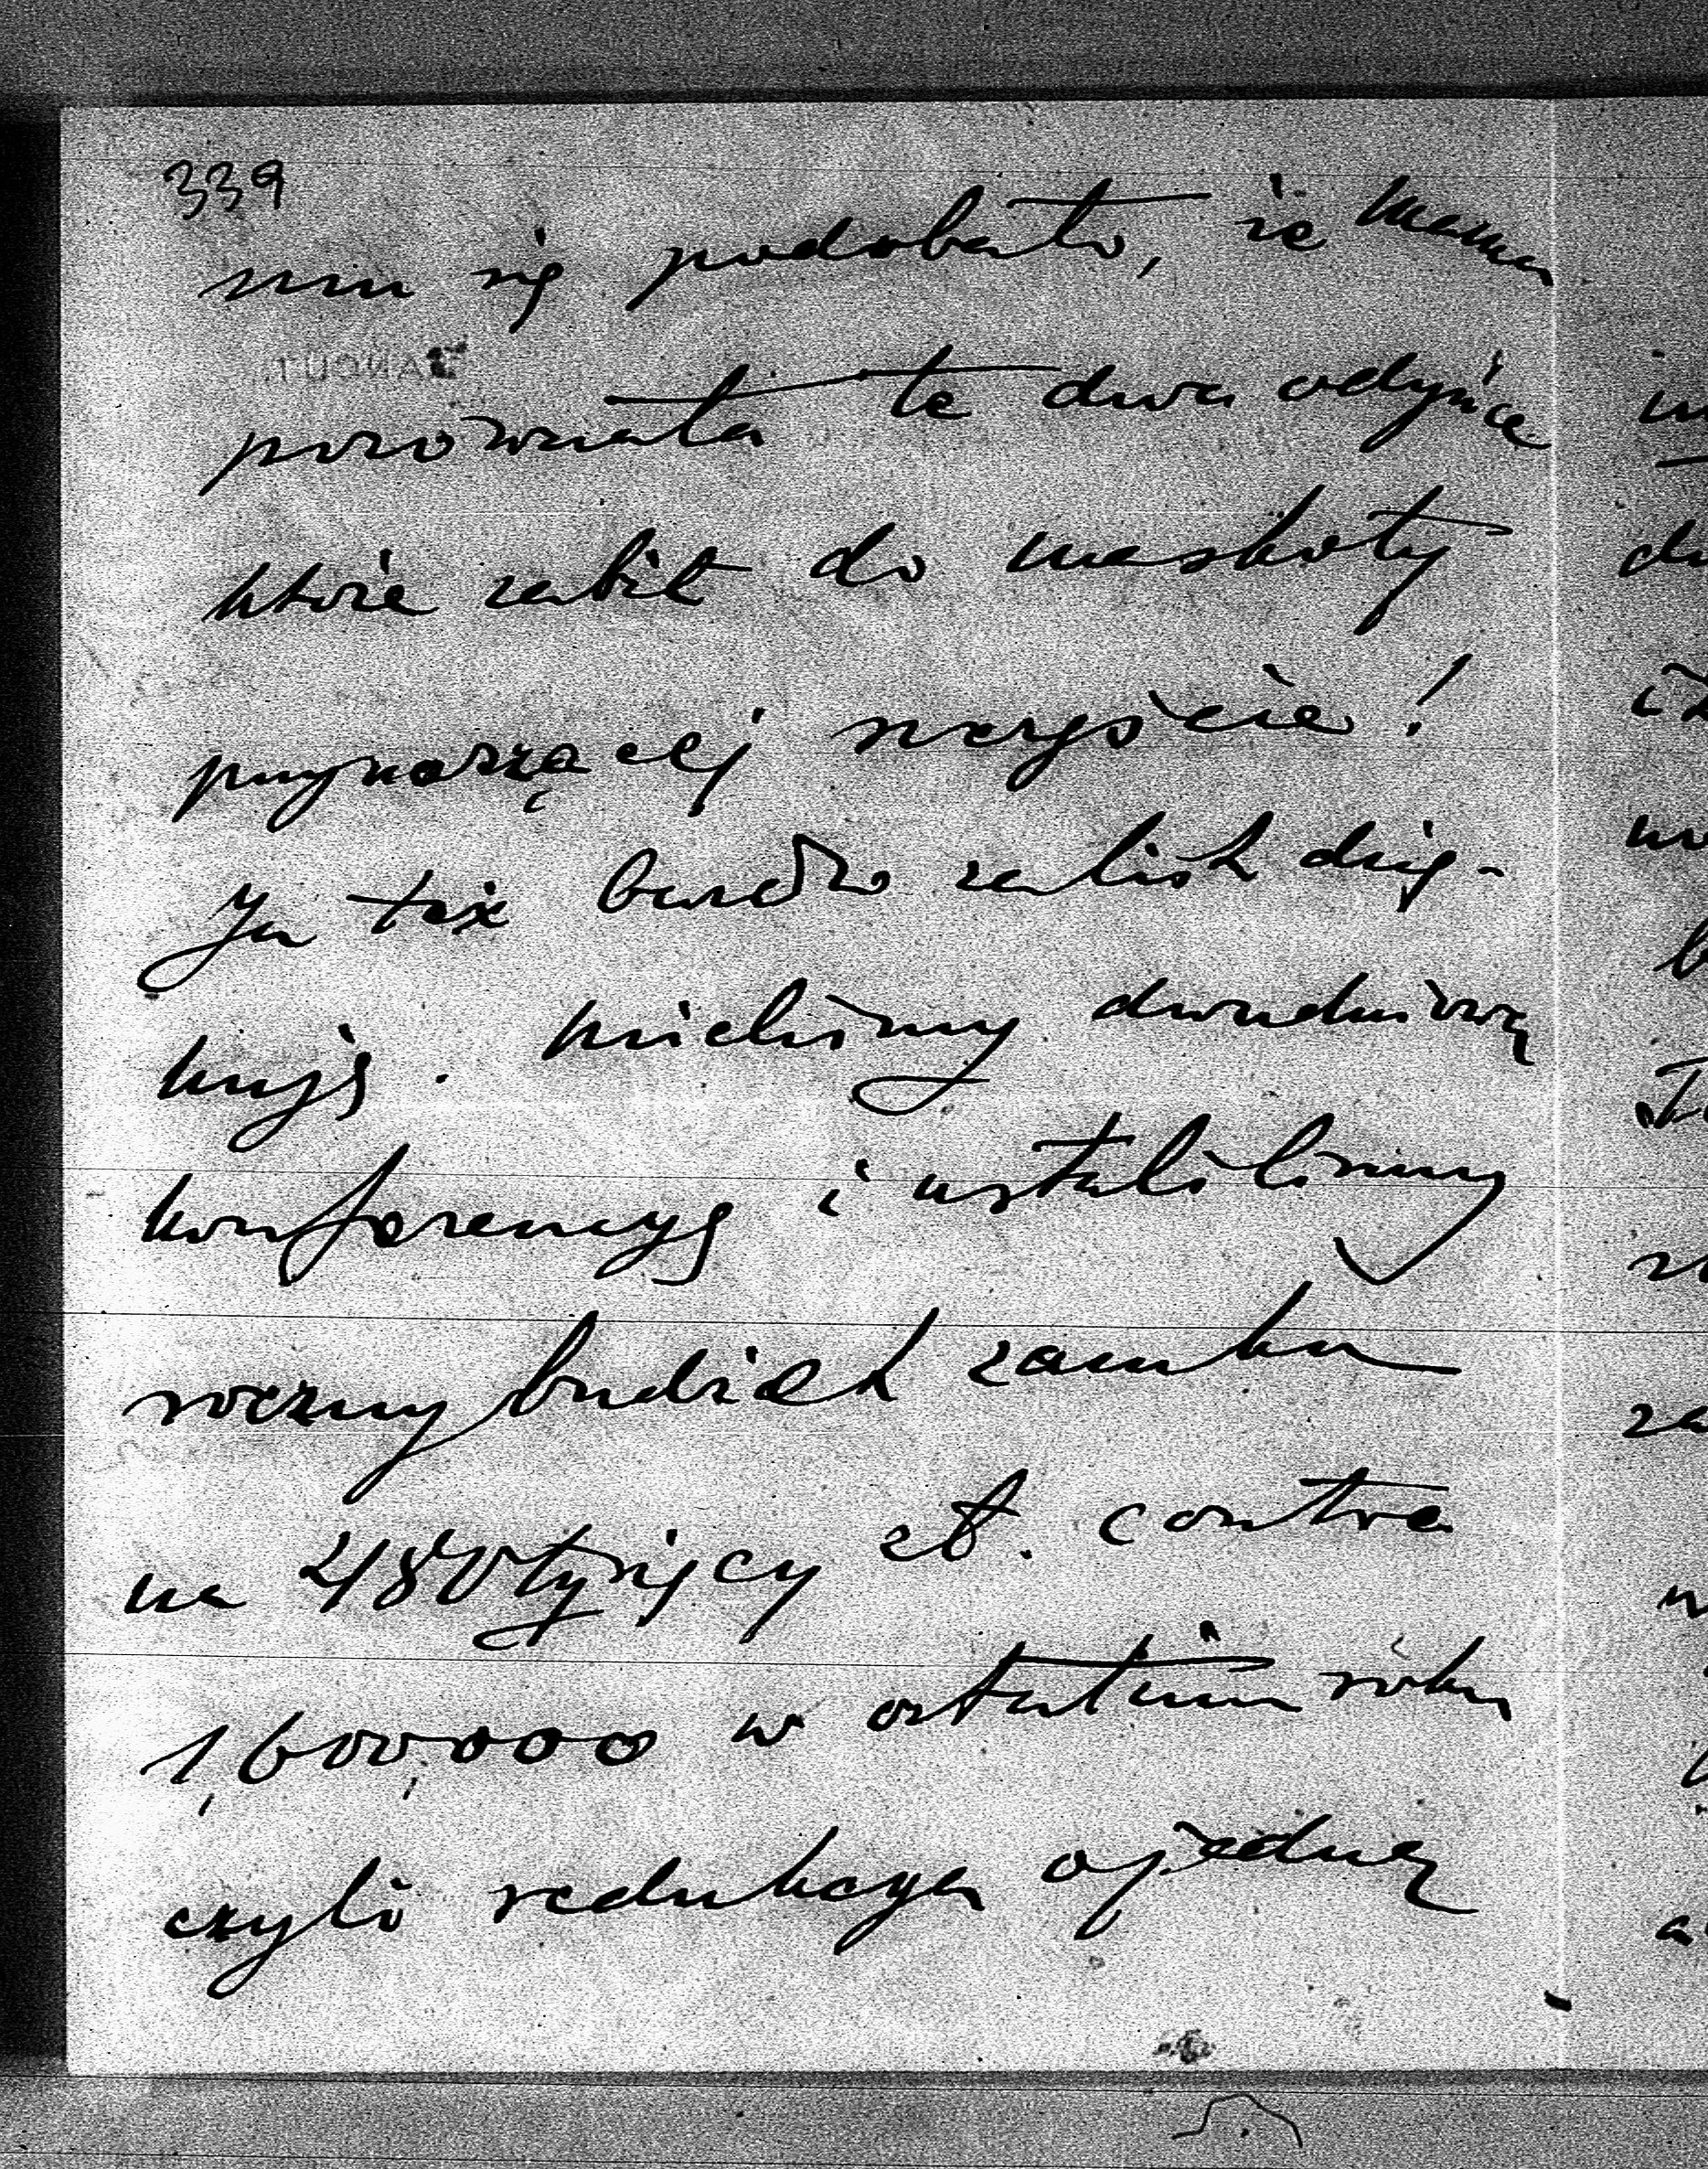 339
mu się podobało, że Mama
porównała te dwa odyńce
które zabił do maskoty
przynoszącej szczęście!
Ja też bardzo za list dzię-
kuję. Mieliśmy dwudniową
konferencyę i ustaliliśmy
roczny budżet zamku
na 480 tysięcy zł. contra
1,600,000 w ostatnim roku
czyli redukcya o jedną